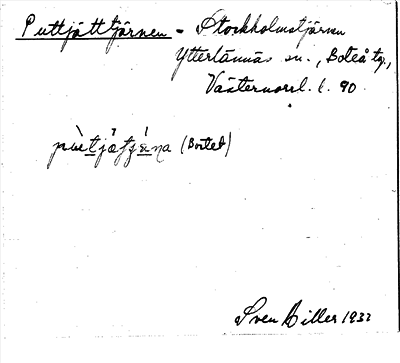 Puttjåttjärnen - Stockholmstjärnen
Ytterlännäs sn., Boteå tg.,
Västernorrl. l. 90
(Bortet)
Sven Hiller 1933